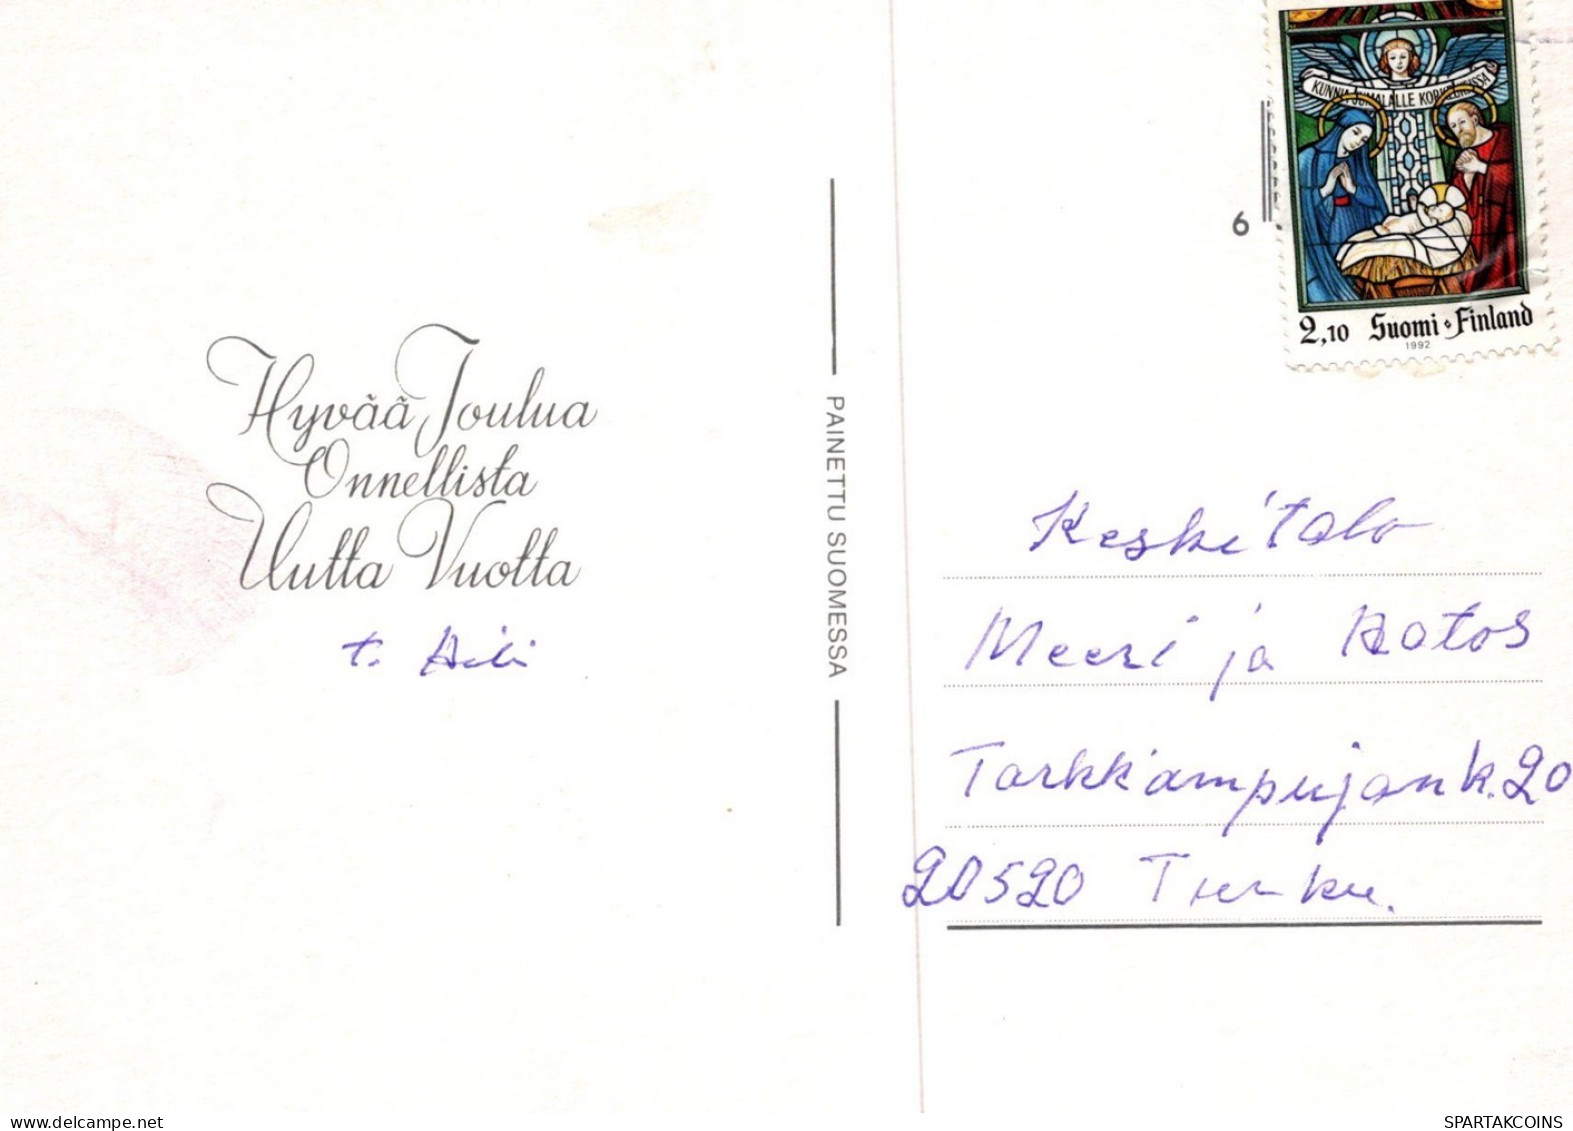 Hyvää Joulua
Onnellista
Uutta Vuotta
t. Aili
PAINETTU SUOMESSA
6
KUNNIA JUMALALLE KORKEUKSISSA
2,10 Suomi Finland
1992
Keskitalo
Meeri ja
Tarkk'ampujank. 20
20520 Turku.
SPARTAKCOINS